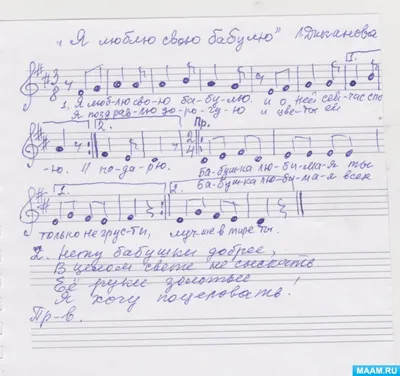 "Я люблю свою бабулю"
1.
3 8
1. Я люб-лю сво-ю ба-бу-лю. и о ней сей-час спо
Я поздрав-лю до-ро-гу-ю и цве-ты ей
2. Пр.
2 4
-ю. // по-да-рю.
Бабушка лю-би-ма-я ты
ба-бушка лю-би-ма-я всех
1. 2.
только не грус-ти, луч-ше в ми-ре ты
2. Нету бабушки добрее,
В целом свете не сыскать
Её руки золотые
Я хочу поцеловать!
Пр-в.
MAAM.RU